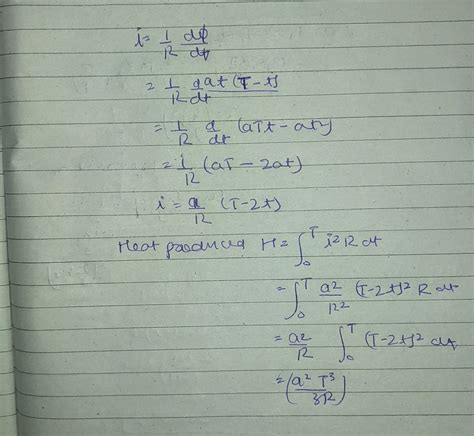 i = 1/R dϕ/dt
= 1/R d/dt at (T-t)
= 1/R d/dt (aTt - at²)
= 1/R (aT - 2at)
i = a/R (T-2t)
Heat produced H = ∫₀ᵀ i²R dt
= ∫₀ᵀ a²/R² (T-2t)² R dt
= a²/R ∫₀ᵀ (T-2t)² dt
= (a² T³/3R)